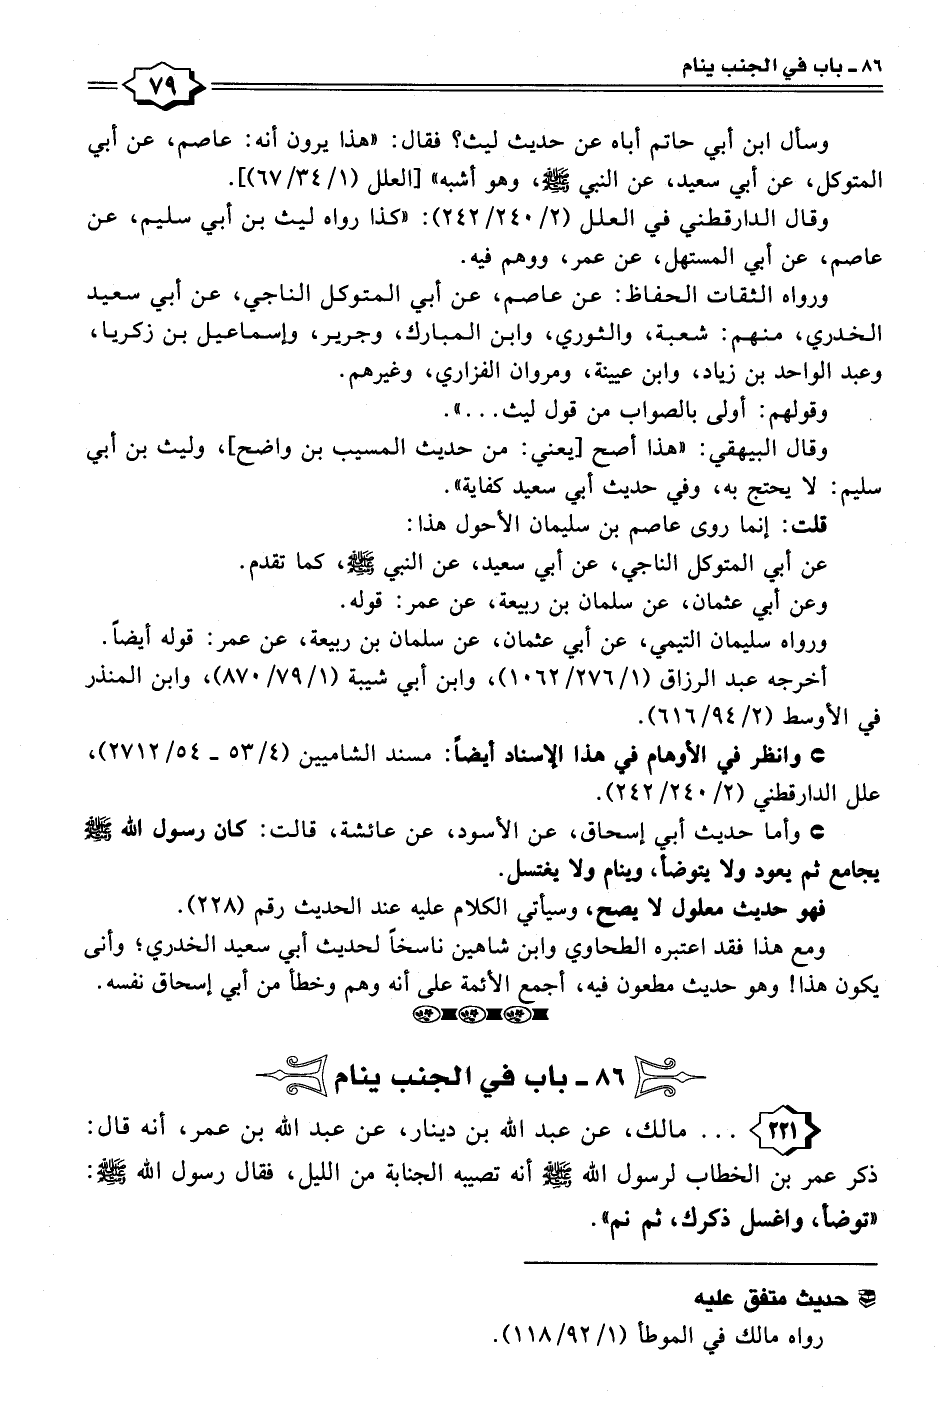 ٨٦ ـ باب في الجنب ينام
٧٩
وسأل ابن أبي حاتم أباه عن حديث ليث؟ فقال: «هذا يرون أنه: عاصم، عن أبي
المتوكل، عن أبي سعيد، عن النبي ﷺ، وهو أشبه» [العلل (٦٧/٣٤/١)].
وقال الدارقطني في العلل (٢٤٢/٢٤٠/٢): «كذا رواه ليث بن أبي سليم، عن
عاصم، عن أبي المستهل، عن عمر، ووهم فيه.
ورواه الثقات الحفاظ: عن عاصم، عن أبي المتوكل الناجي، عن أبي سعيد
الخدري، منهم: شعبة، والثوري، وابن المبارك، وجرير، وإسماعيل بن زكريا،
وعبد الواحد بن زياد، وابن عيينة، ومروان الفزاري، وغيرهم.
وقولهم: أولى بالصواب من قول ليث...».
وقال البيهقي: «هذا أصح [يعني: من حديث المسيب بن واضح]، وليث بن أبي
سليم: لا يحتج به، وفي حديث أبي سعيد كفاية».
قلت: إنما روى عاصم بن سليمان الأحول هذا:
عن أبي المتوكل الناجي، عن أبي سعيد، عن النبي ﷺ، كما تقدم.
وعن أبي عثمان، عن سلمان بن ربيعة، عن عمر: قوله.
ورواه سليمان التيمي، عن أبي عثمان، عن سلمان بن ربيعة، عن عمر: قوله أيضاً.
أخرجه عبد الرزاق (١٠٦٢/٢٧٦/١)، وابن أبي شيبة (٨٧٠/٧٩/١)، وابن المنذر
في الأوسط (٦١٦/٩٤/٢).
وانظر في الأوهام في هذا الإسناد أيضاً: مسند الشاميين (٥٣/٤ ـ ٢٧١٢/٥٤)،
علل الدارقطني (٢٤٢/٢٤٠/٢).
وأما حديث أبي إسحاق، عن الأسود، عن عائشة، قالت: كان رسول الله ﷺ
يجامع ثم يعود ولا يتوضأ، وينام ولا يغتسل.
فهو حديث معلول لا يصح، وسيأتي الكلام عليه عند الحديث رقم (٢٢٨).
ومع هذا فقد اعتبره الطحاوي وابن شاهين ناسخاً لحديث أبي سعيد الخدري؛ وأنى
يكون هذا! وهو حديث مطعون فيه، أجمع الأئمة على أنه وهم وخطأ من أبي إسحاق نفسه.
٨٦ ـ باب في الجنب ينام
٢٢١ ... مالك، عن عبد الله بن دينار، عن عبد الله بن عمر، أنه قال:
ذكر عمر بن الخطاب لرسول الله ﷺ أنه تصيبه الجنابة من الليل، فقال رسول الله ﷺ:
«توضأ، واغسل ذكرك، ثم نم».
حديث متفق عليه
رواه مالك في الموطأ (١١٨/٩٢/١).